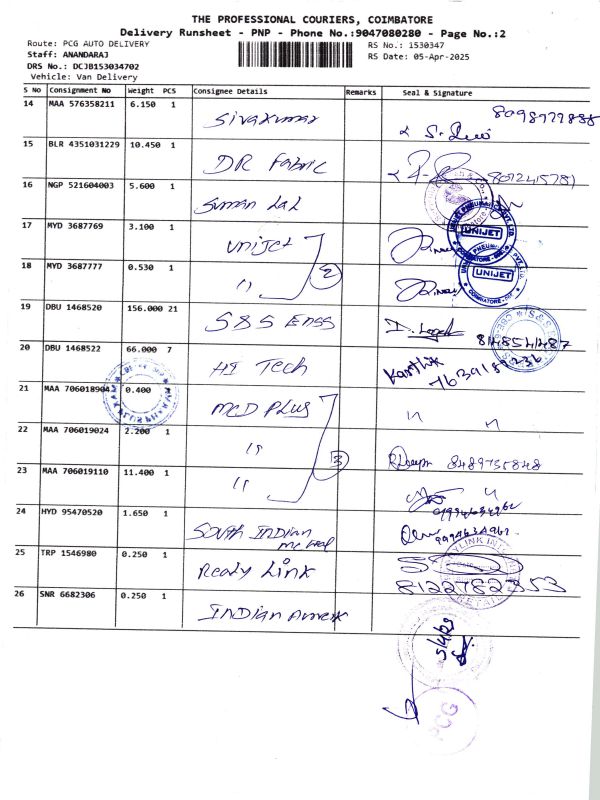 THE PROFESSIONAL COURIERS, COIMBATORE
Delivery Runsheet - PNP - Phone No.:9047080280 - Page No.:2
Route: PCG AUTO DELIVERY
RS No.: 1530347
Staff: ANANDARAJ
RS Date: 05-Apr-2025
DRS No.: DCJB153034702
Vehicle: Van Delivery
S No Consignment No Weight PCS Consignee Details Remarks Seal & Signature
14 MAA 576358211 6.150 1 Sivakumar
15 BLR 4351031229 10.450 1 DR Fabric
16 NGP 521604003 5.600 1 Suman Lal
17 MYD 3687769 3.100 1 Unijet
UNIJET
18 MYD 3687777 0.530 1 " 2
UNIJET
COIMBATORE
19 DBU 1468520 156.000 21 S&S Engg 8148541487
20 DBU 1468522 66.000 7 Hi Tech Karthik
21 MAA 706018904 0.400 MCD PLUS " "
22 MAA 706019024 2.200 1 " 3 8489735848
23 MAA 706019110 11.400 1 " "
24 HYD 95470520 1.650 1 South Indian
25 TRP 1546980 0.250 1 Ready Link
8122782353
26 SNR 6682306 0.250 1 Indian
5/4/25
PCG